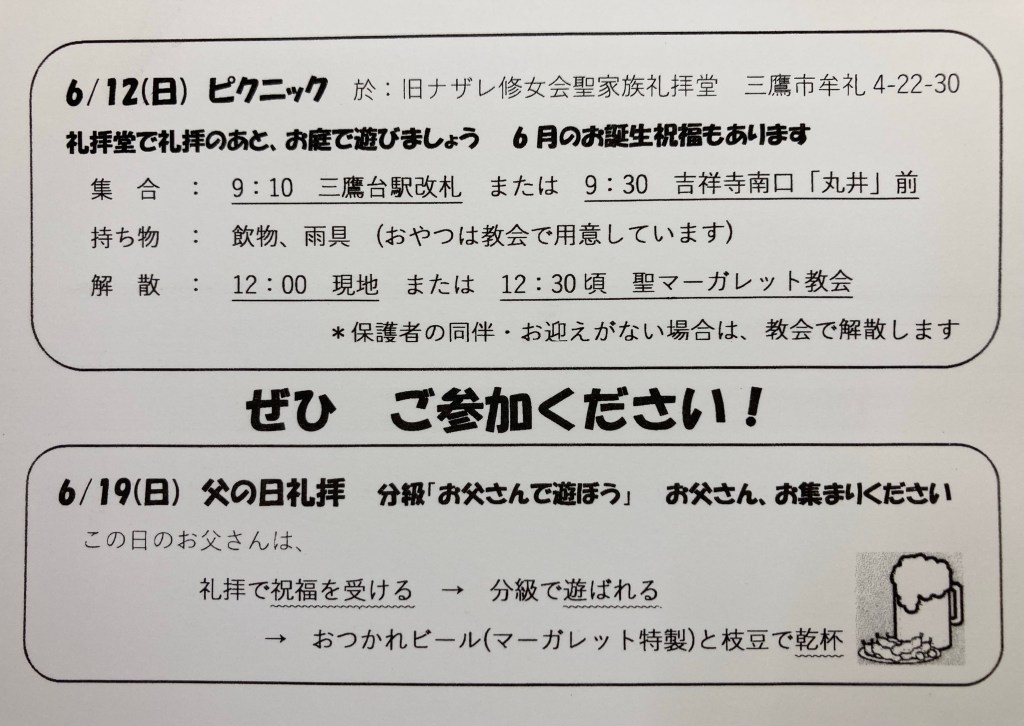 6/12(日) ピクニック 於：旧ナザレ修女会聖家族礼拝堂 三鷹市牟礼 4-22-30
礼拝堂で礼拝のあと、お庭で遊びましょう 6 月のお誕生祝福もあります
集 合 ： 9：10 三鷹台駅改札 または 9：30 吉祥寺南口「丸井」前
持ち物 ： 飲物、雨具 (おやつは教会で用意しています)
解 散 ： 12：00 現地 または 12：30 頃 聖マーガレット教会
＊保護者の同伴・お迎えがない場合は、教会で解散します
ぜひ ご参加ください！
6/19(日) 父の日礼拝 分級「お父さんで遊ぼう」 お父さん、お集まりください
この日のお父さんは、
礼拝で祝福を受ける → 分級で遊ばれる
→ おつかれビール(マーガレット特製)と枝豆で乾杯